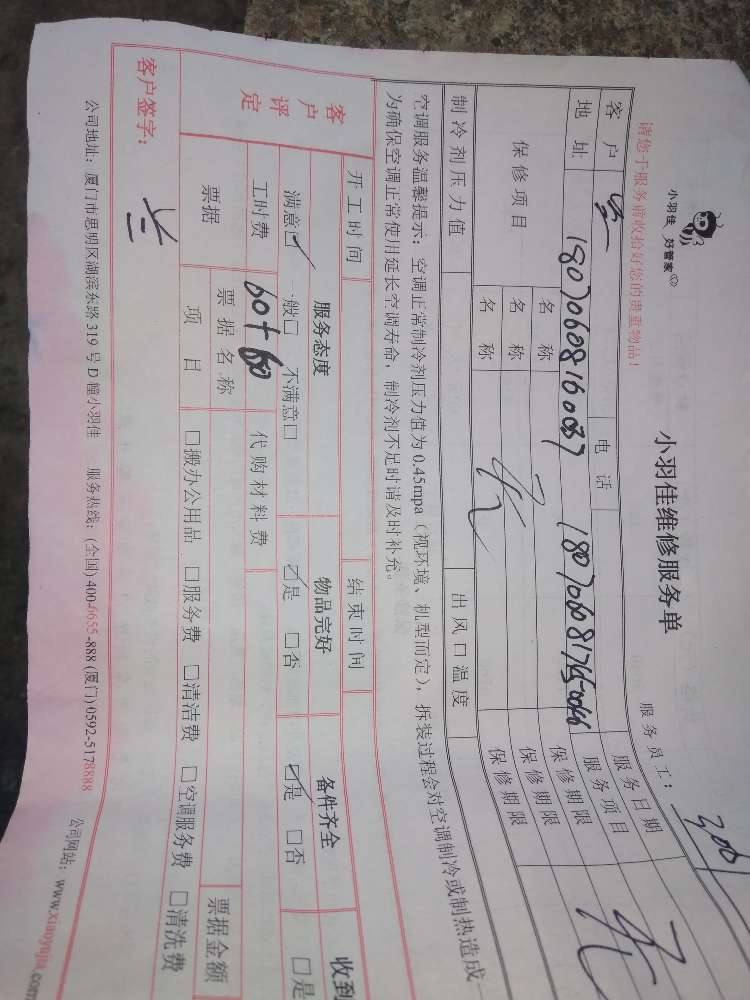 小羽佳 好管家
小羽佳维修服务单
请您于服务前收拾好您的贵重物品！
服务员工：
客户
电话
服务日期
地址
18070608160037 18070608176-0046
服务项目
保修项目
名称
保修期限
名称
保修期限
名称
保修期限
制冷剂压力值
出风口温度
空调服务温馨提示：空调正常制冷剂压力值为0.45mpa（视环境、机型而定），拆装过程会对空调制冷或制热造成
为确保空调正常使用延长空调寿命，制冷剂不足时请及时补充。
开工时间
结束时间
客户评定
服务态度
物品完好
备件齐全
收到
满意☑ 一般□ 不满意□
☑是 □否
☑是 □否
□是
工时费
60+60
代购材料费
票据
票据名称
票据金额
项目
□搬办公用品 □服务费 □清洁费 □空调服务费 □清洗费
客户签字：
公司地址：厦门市思明区湖滨东路319号D幢小羽佳 服务热线：(全国) 400-6655-888 (厦门) 0592-5178888 公司网站：www.xiaoyujia.com